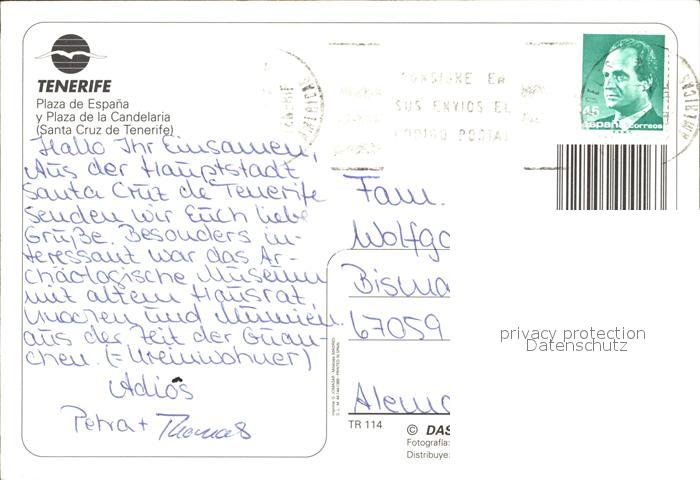 TENERIFE
Plaza de España
y Plaza de la Candelaria
(Santa Cruz de Tenerife)
Hallo Ihr Einsamen,
Aus der Hauptstadt
Santa Cruz de Tenerife
senden wir Euch liebe
Grüße. Besonders in-
teressant war das Ar-
chäologische Museum
mit altem Hausrat,
Knochen und Mumien
aus der Zeit der Guan-
chen. (= Ureinwohner)
Adiós
Petra + Thomas
CONSIGNE EN
SUS ENVIOS EL
CODIGO POSTAL
45
España correos
AMERICA
Fam.
Wolfga
Bisma
67059
Alema
privacy protection
Datenschutz
TR 114
© DAS
Fotografía:
Distribuye: